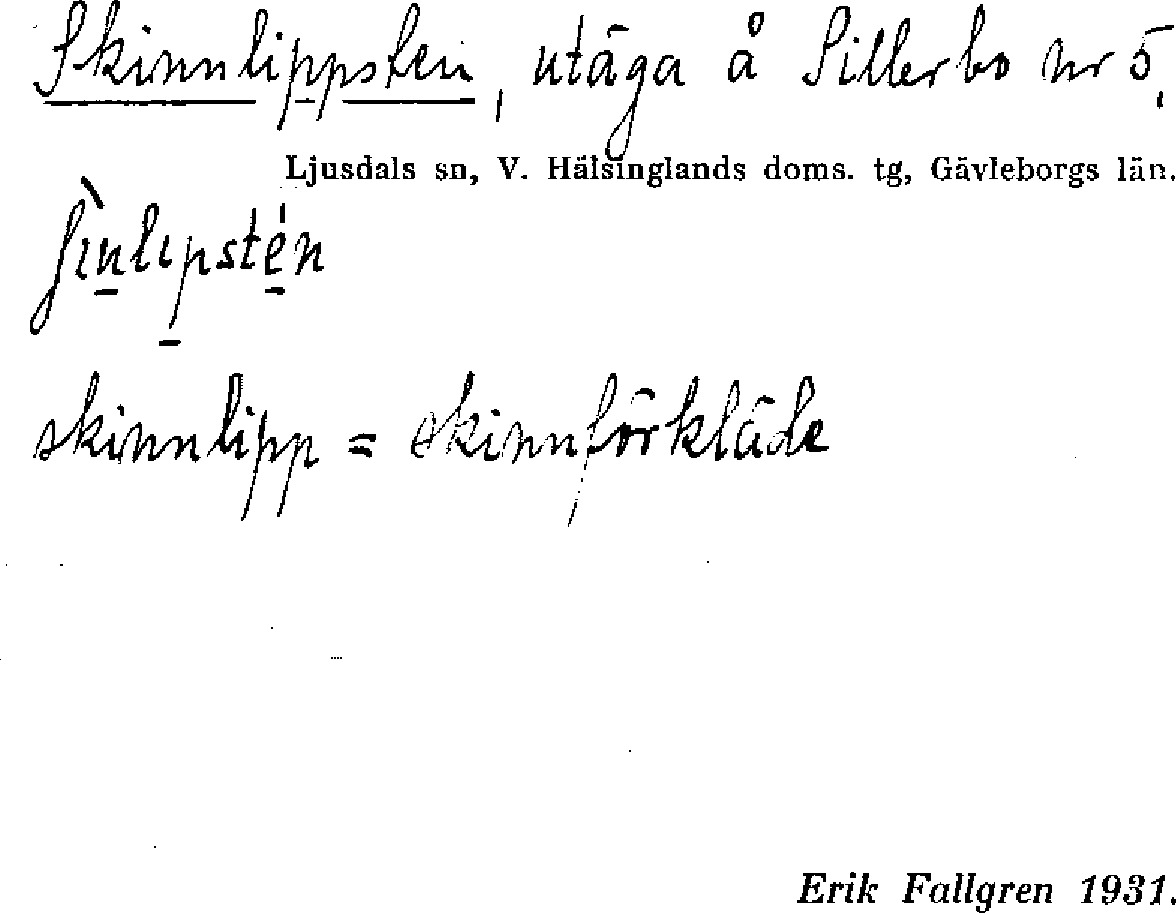 Skinnlippsten, utäga å Sillerbo nr 5,
Ljusdals sn, V. Hälsinglands doms. tg, Gävleborgs län.
ʃìn̲lɩp̲sté̲n
skinnlipp = skinnförkläde
Erik Fallgren 1931.